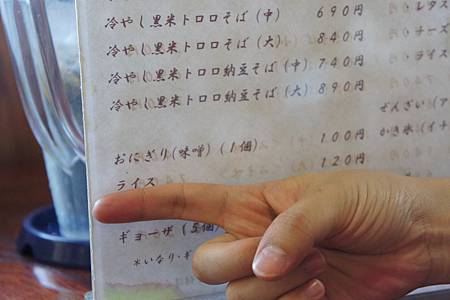 冷やし黒米トロロそば(中) 690円
冷やし黒米トロロそば(大) 840円
冷やし黒米トロロ納豆そば(中) 740円
冷やし黒米トロロ納豆そば(大) 890円
おにぎり(味噌)(1個) 100円
ライス 120円
ギョーザ(5個)
*いなり・ギ
レタス
チーズ
ライス
ぜんざい(ア
かき氷(イチ